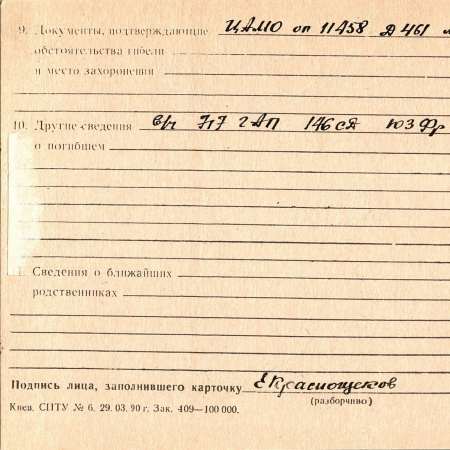 9. Документы, подтверждающие ЦАМО оп 11458 Д 461
обстоятельства гибели
и место захоронения
10. Другие сведения в/ч 717 ГАП 146 сд ЮЗ Фр
о погибшем
Сведения о ближайших
родственниках
Подпись лица, заполнившего карточку ЕКраснощеков
(разборчиво)
Киев. СПТУ № 6. 29. 03. 90 г. Зак. 409—100 000.